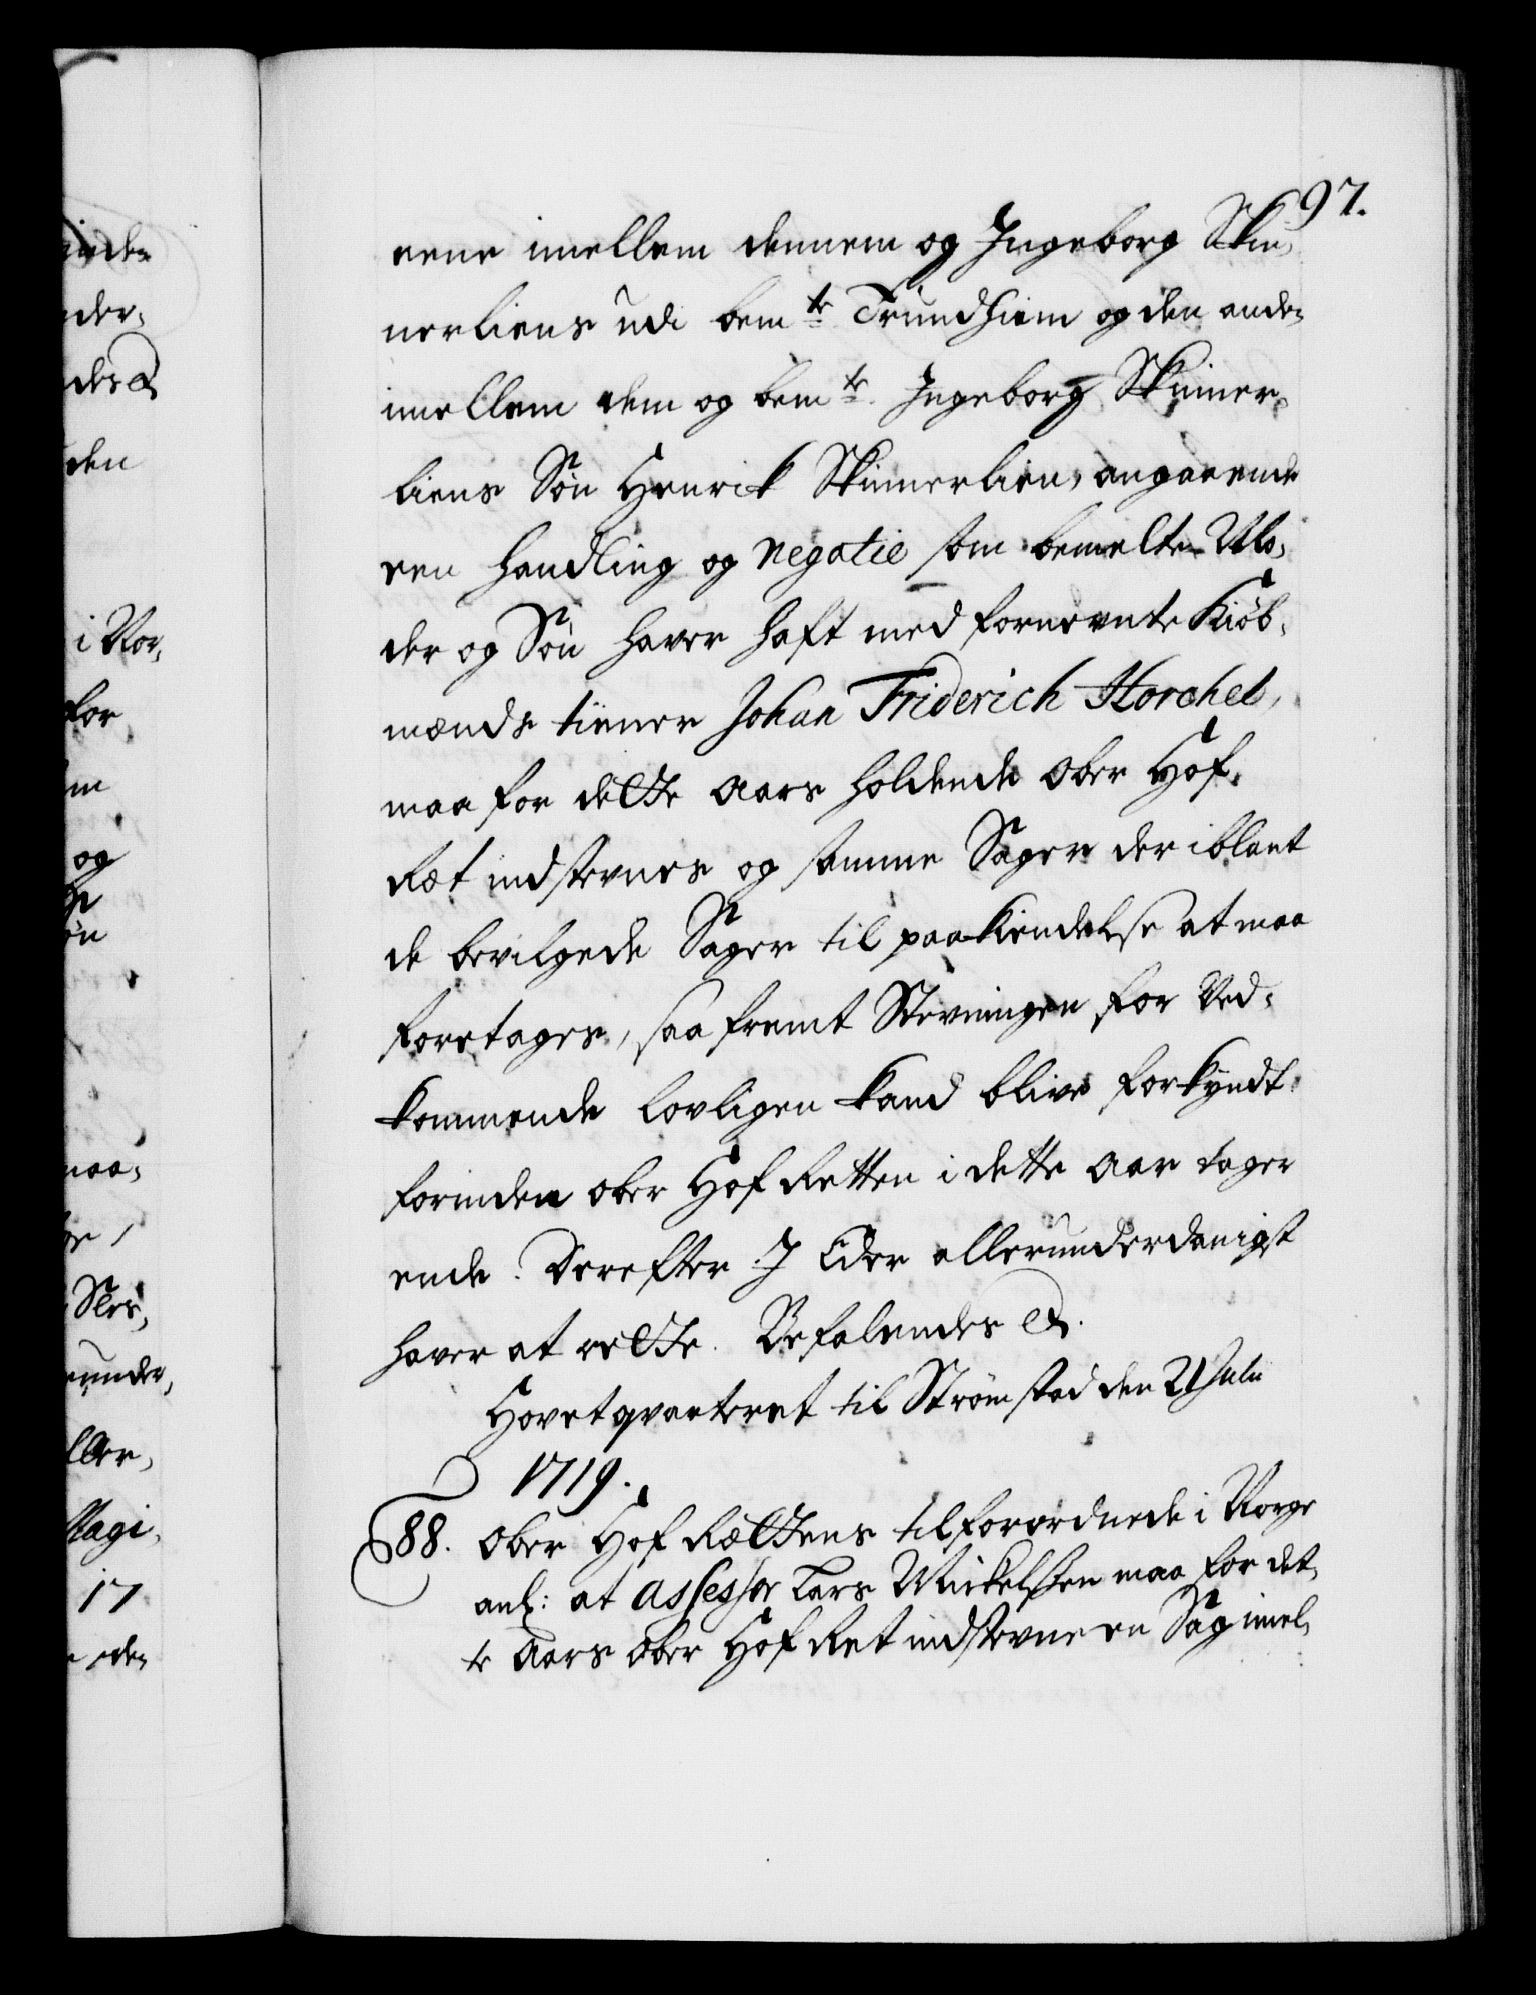 97.
eene imellem dennem og Ingeborg Skin,
nerliens udi bem.te Trundhiem og den anden
imellem dem og bem.te Ingeborg Skinner,
liens Søn Henrik Skinnerlien, angaaende
een handling og negotie som bemelte Mo,
der og Søn haver haft med fornevnte Kiøb,
mænds tiener Johan Friderich Horchel,
maa for dette Aars holdende Ober Hof,
Ræt indstevnes og samme Sager der iblant
de bevilgede Sager til paakiendelse at maa
foretages, saa fremt Stevningen for Ved,
kommende lovligen kand blive forkyndt
forinden ober Hof Retten i dette Aar tager
ende. Derefter I Eder allerunderdanigst
haver at rette. Befalendes &.
Hovetqvarteret til Strømstad den 21 Julii
1719.
88. Ober Hof Rættens tilforordnede i Norge
anl: at Assessor Lars Mickelsen maa for det,
te Aars Ober Hof Ret indstevne en Sag imel,
nder,
des &
den
i Nor,
for
og
maa,
under,
ller,
Magi,
17